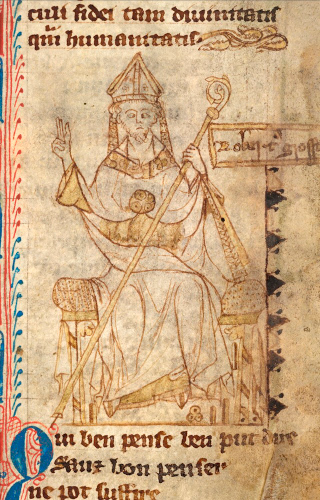 culi fidei tam diuinitatis
qm humanitatis.
Qui ben pense ben put dire
Sanz bon penser
ne pot suffire